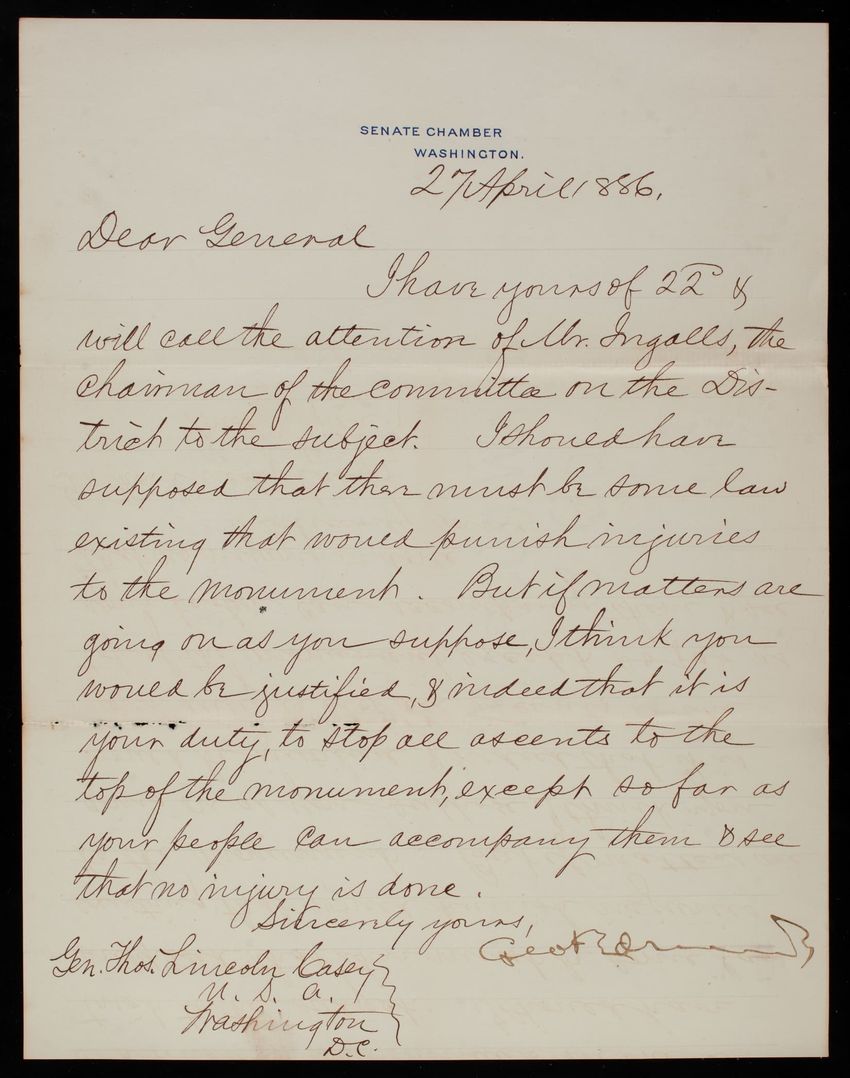 SENATE CHAMBER
WASHINGTON.
27 April 1886.
Dear General
I have yours of 22d &
will call the attention of Mr. Ingalls, the
chairman of the committee on the Dis-
trict to the subject. I should have
supposed that there must be some law
existing that would punish injuries
to the monument. But if matters are
going on as you suppose, I think you
would be justified, & indeed that it is
your duty, to stop all ascents to the
top of the monument, except so far as
your people can accompany them & see
that no injury is done.
Sincerely yours,
Geo F Edmunds
Gen. Thos. Lincoln Casey
U. S. A.
Washington
D.C.